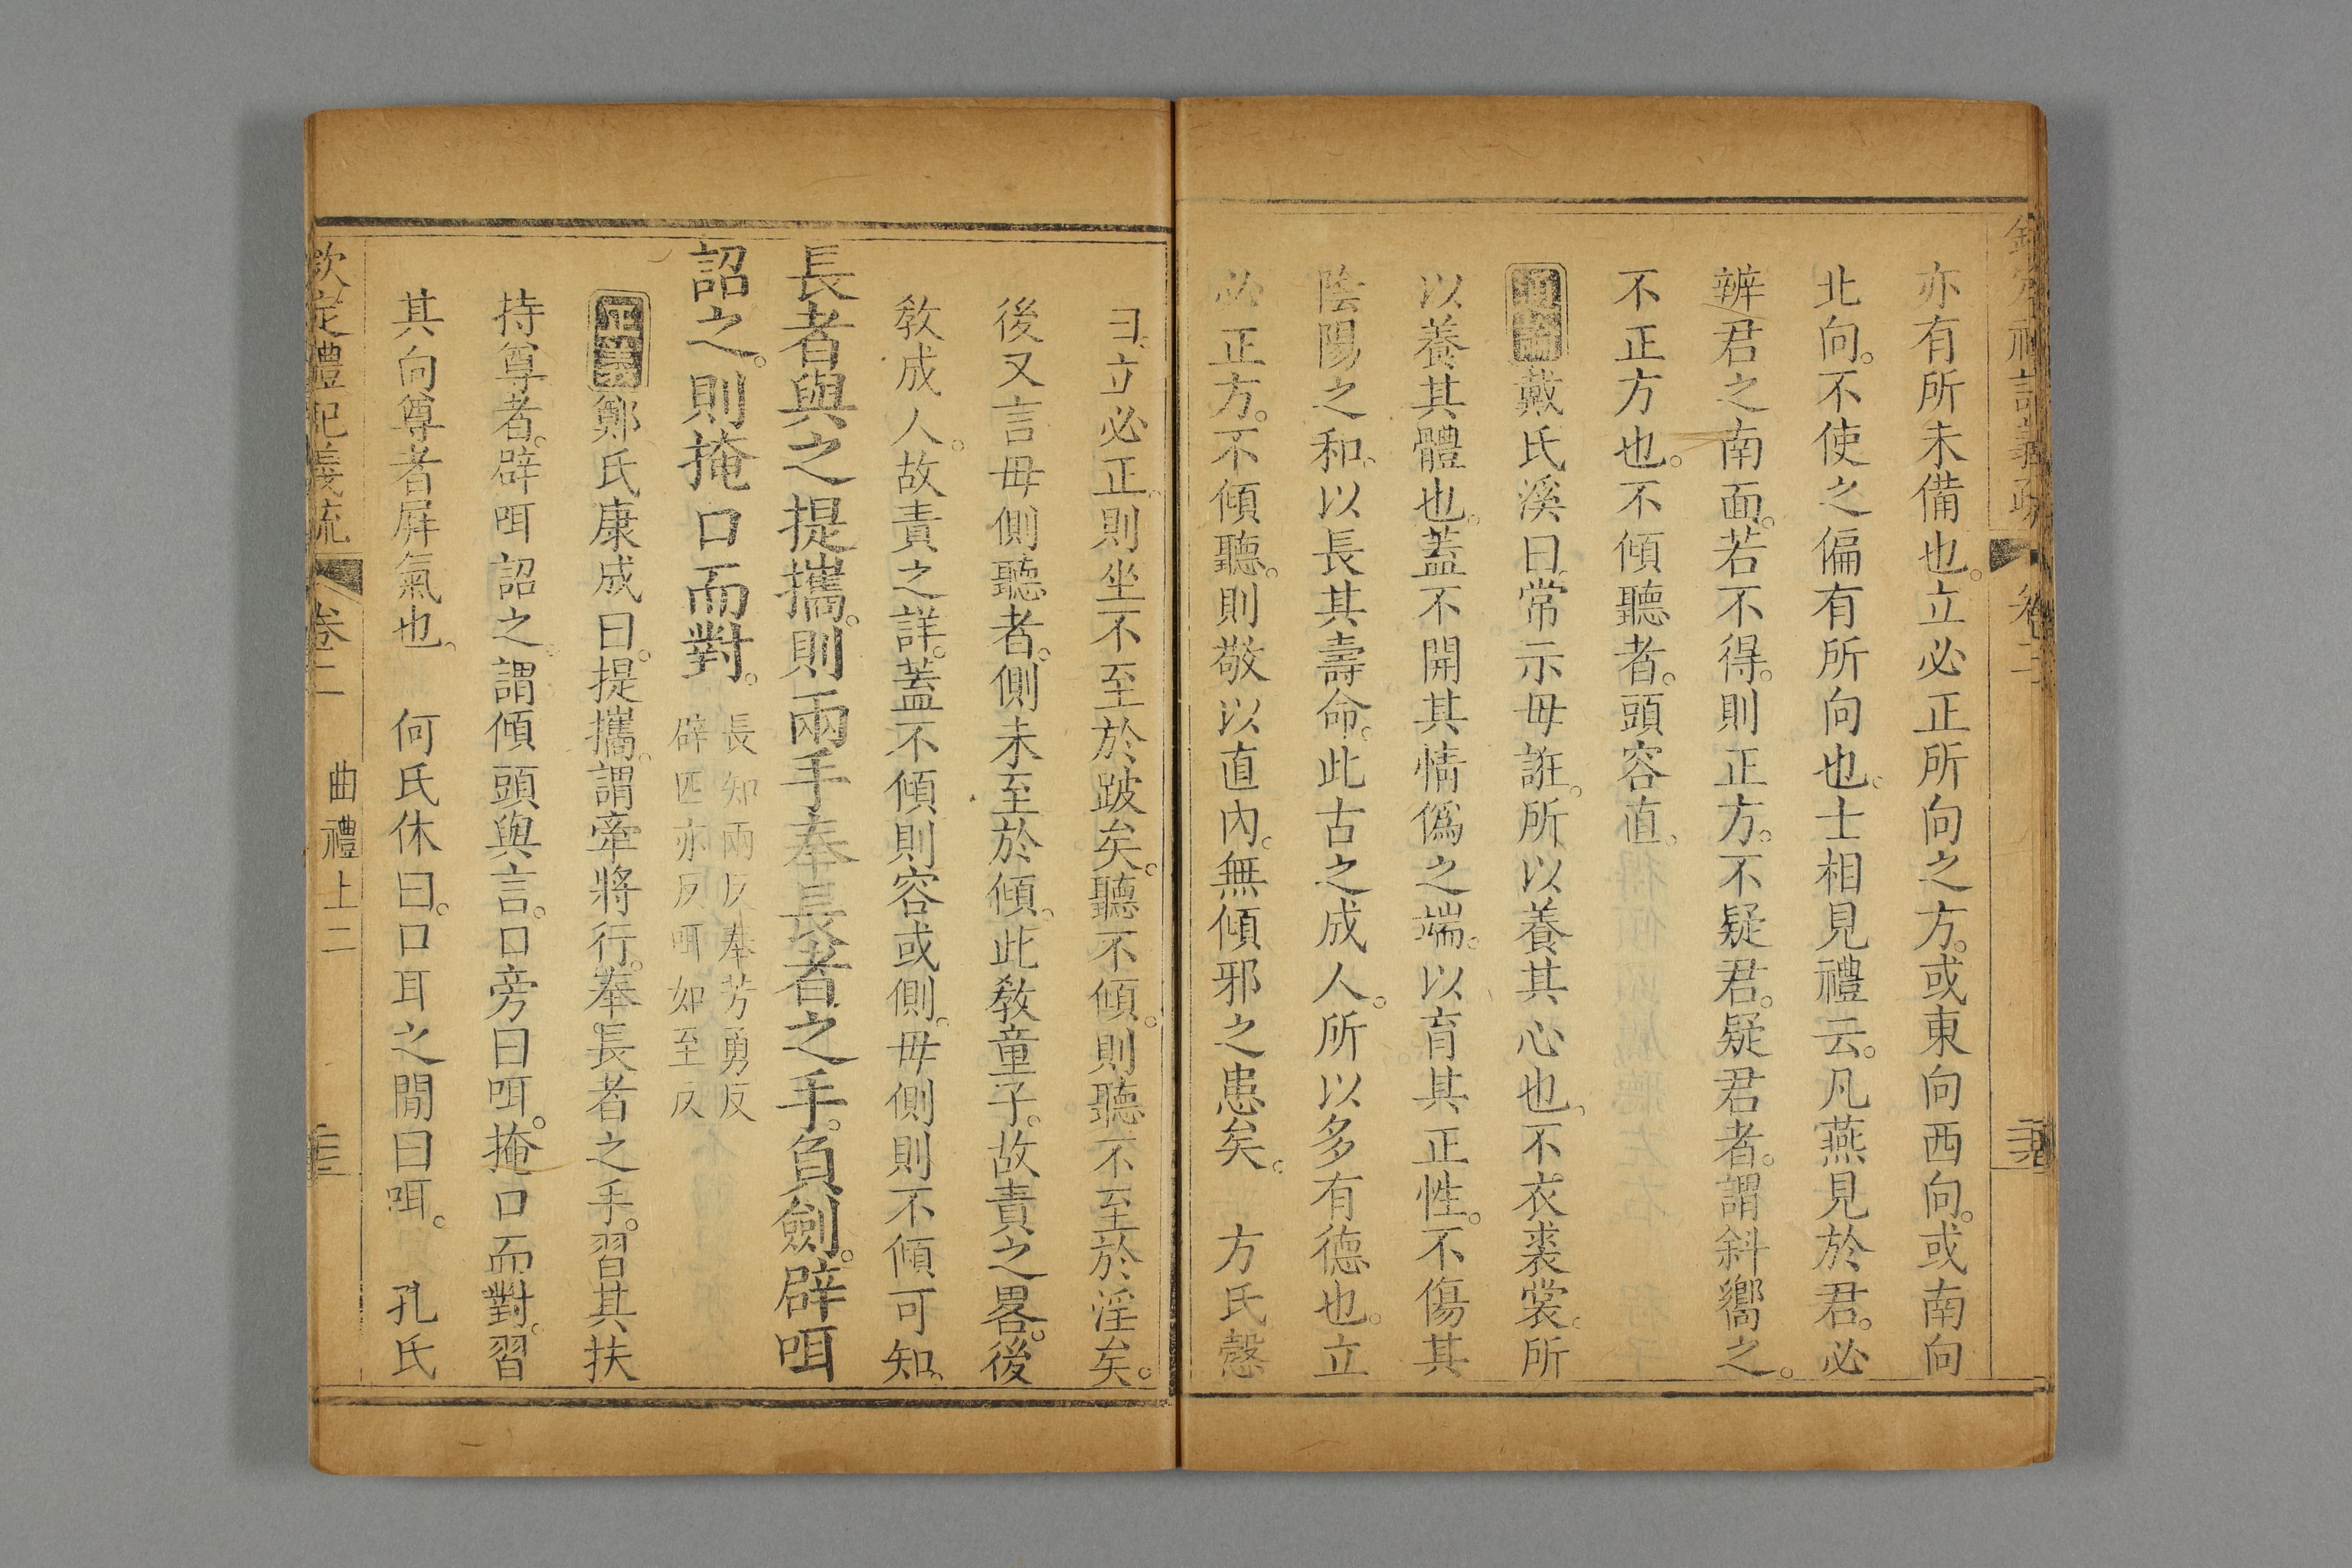 欽定禮記義疏 卷二
亦有所未備也。立必正所向之方。或東向西向。或南向
北向。不使之偏有所向也。士相見禮云。凡燕見於君。必
辨君之南面。若不得。則正方。不疑君。疑君者。謂斜嚮之。
不正方也。不傾聽者。頭容直。
通論戴氏溪曰。常示毋誑。所以養其心也。不衣裘裳。所
以養其體也。蓋不開其情僞之端。以育其正性。不傷其
陰陽之和。以長其壽命。此古之成人。所以多有德也。立
必正方。不傾聽。則敬以直內。無傾邪之患矣。 方氏慤
曰。立必正。則坐不至於跛矣。聽不傾。則聽不至於淫矣。
後又言毋側聽者。側未至於傾。此敎童子。故責之畧。後
敎成人。故責之詳。蓋不傾則容或側。毋側則不傾可知。
長者與之提攜。則兩手奉長者之手。負劍。辟咡
詔之。則掩口而對。
長知兩反奉芳勇反
辟匹亦反咡如至反
正義鄭氏康成曰。提攜。謂牽將行。奉長者之手。習其扶
持尊者。辟咡詔之。謂傾頭與言。口旁曰咡。掩口而對。習
其向尊者屛氣也。 何氏休曰。口耳之閒曰咡。 孔氏
欽定禮記義疏 卷二 曲禮上二